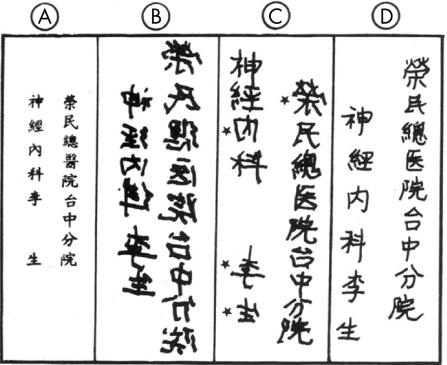 A
B
C
D
榮民總醫院台中分院
神經內科李 生
榮民總医院台中分院
神經內科 李生
榮民總医院台中分院
神經內科 李生
榮民總医院台中分院
神經內科李生